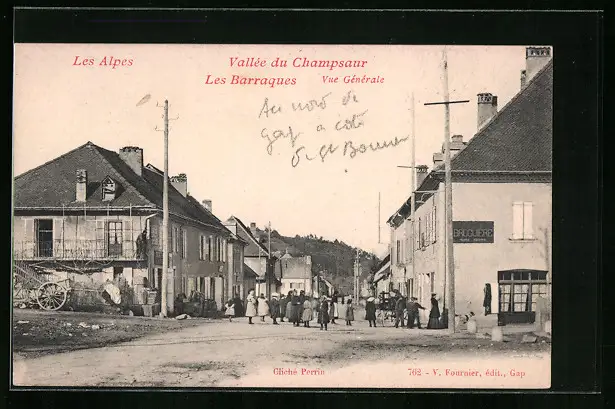 Les Alpes
Vallée du Champsaur
Les Barraques Vue Générale
Au nord de
Gap a coté
de St Bonnet
BRUGUIERE
Cliché Perrin
762 - V. Fournier, édit., Gap